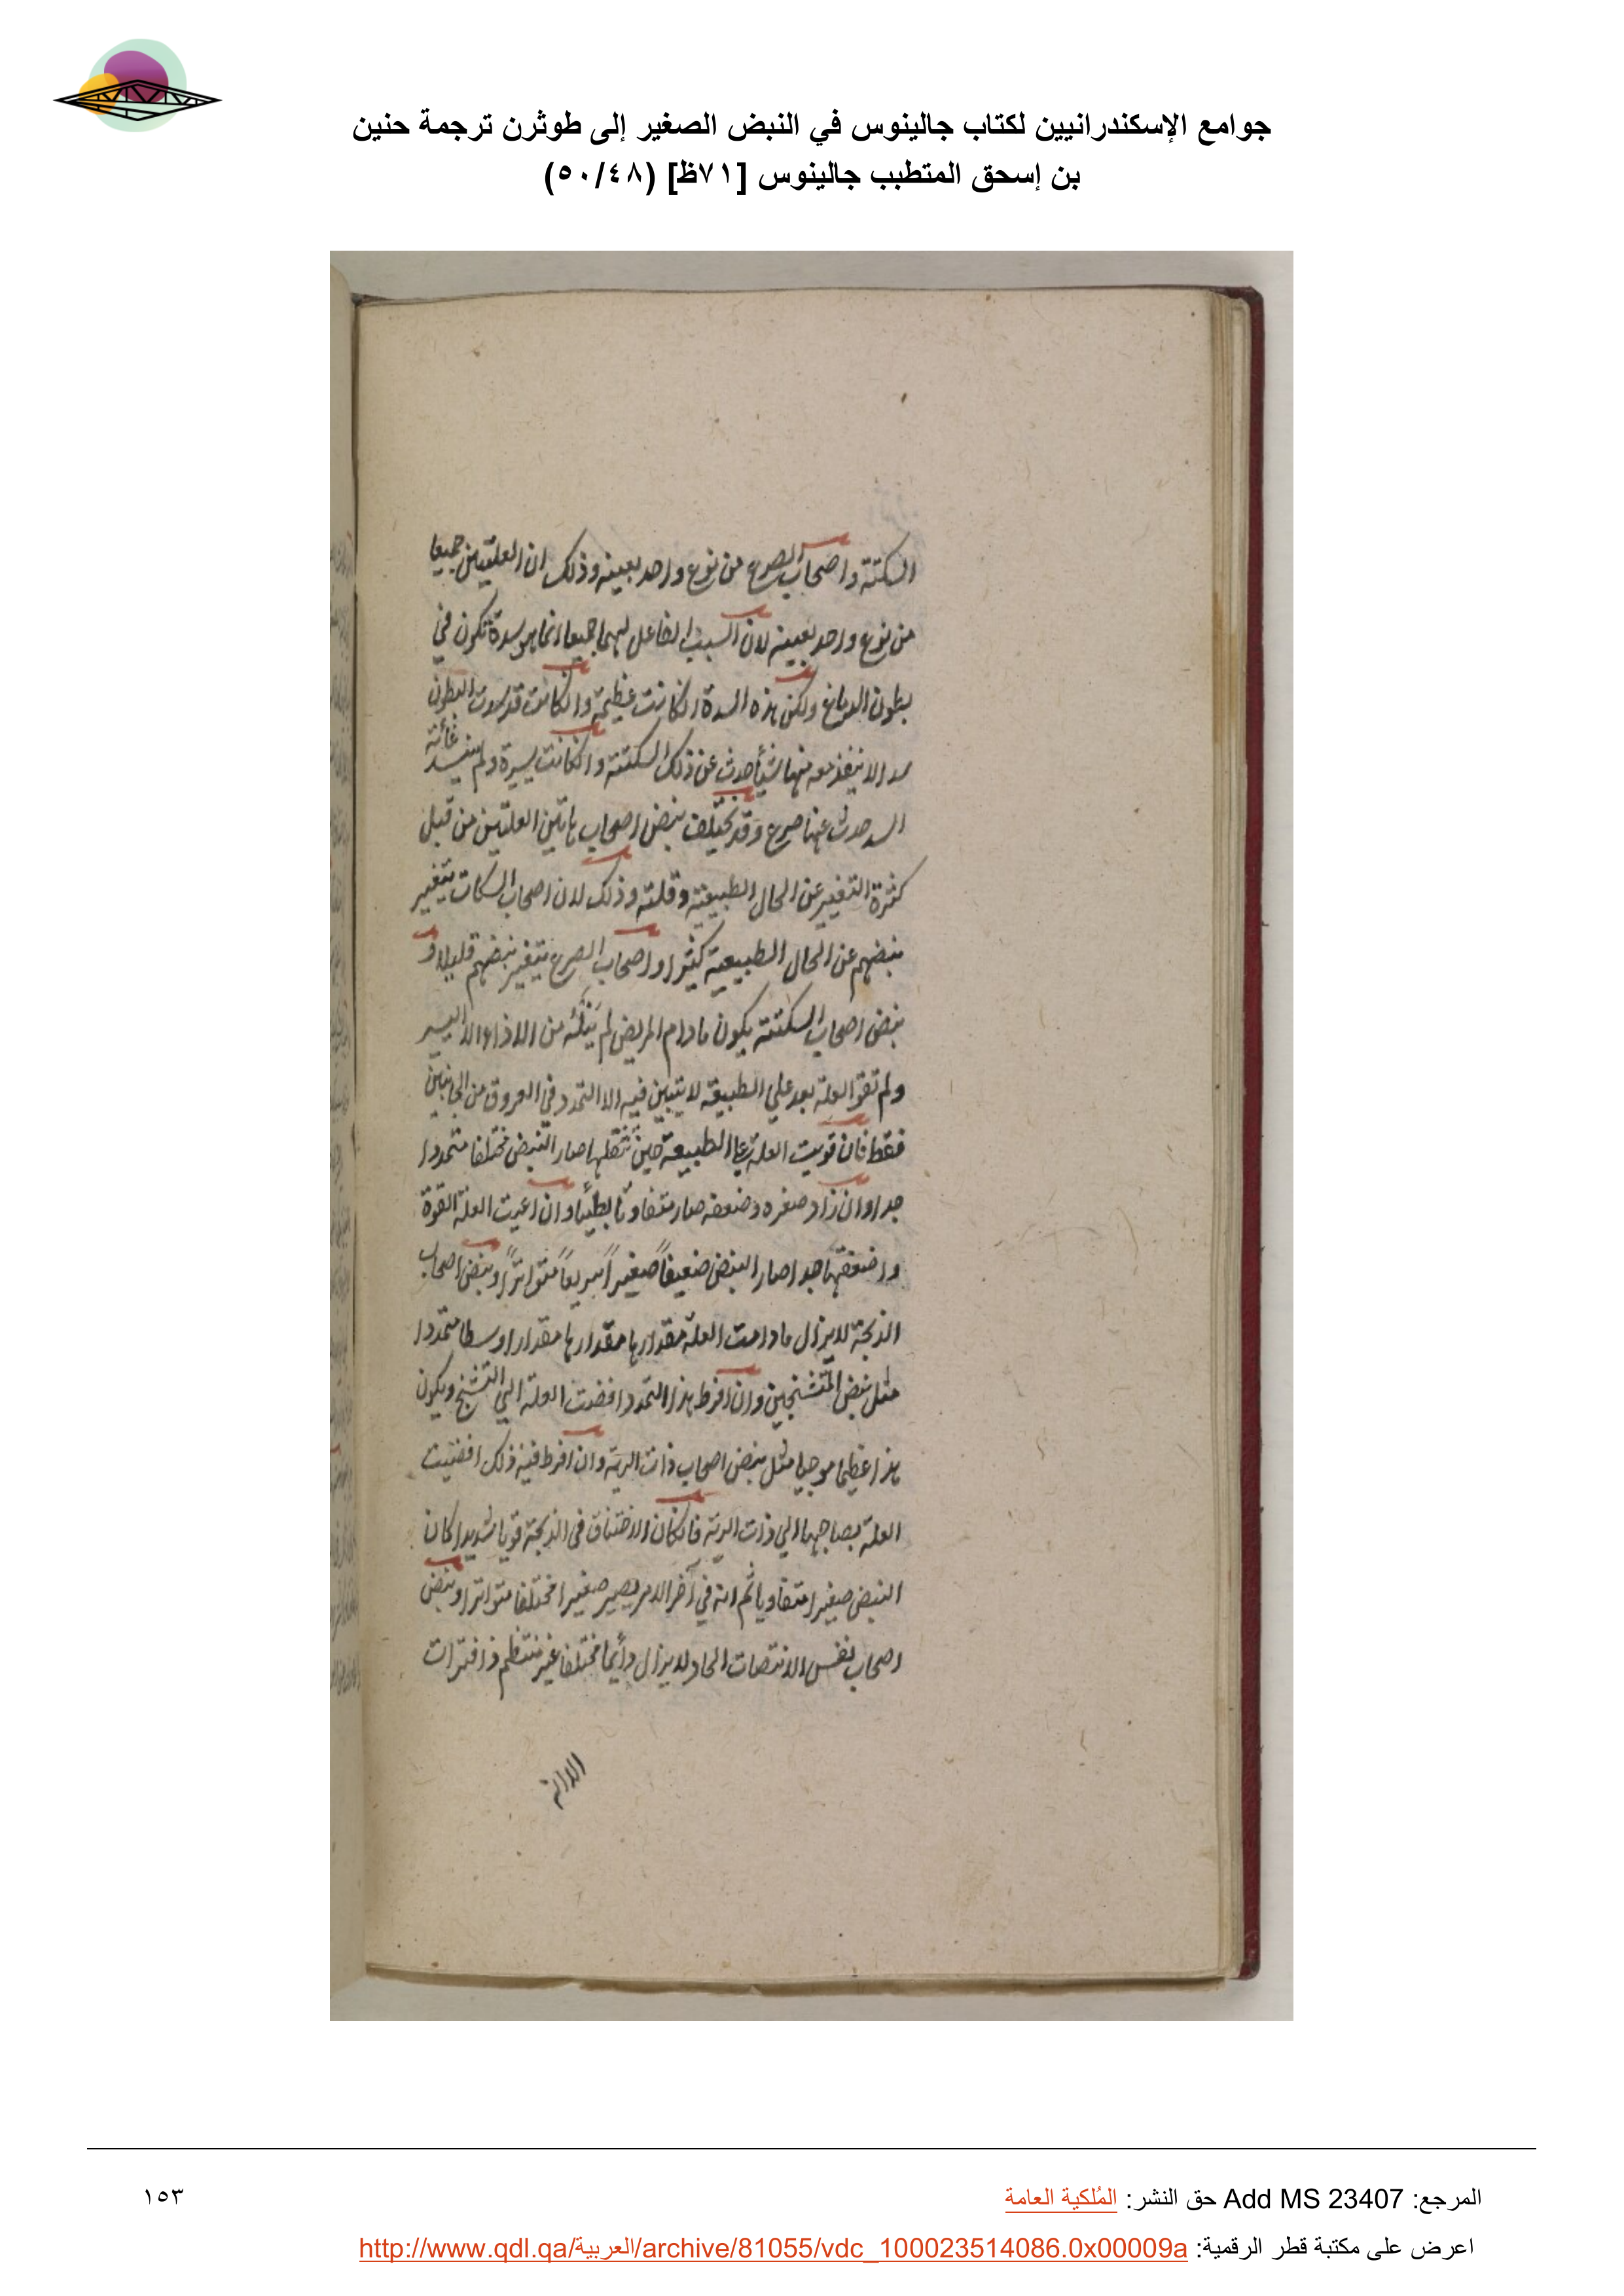 جوامع الإسكندرانيين لكتاب جالينوس في النبض الصغير إلى طوثرن ترجمة حنين
بن إسحق المتطبب جالينوس [٧١ظ] (٥٠/٤٨)
السكتة واصحاب الصرع من نوع واحد بعينه وذلك ان العلتين جميعا
من نوع واحد بعينه لان السبب الفاعل لهما جميعا انما هو سدة تكون في
بطون الدماغ ولكن هذه السدة انكانت عظيمة وانكانت قد سدت البطون
سدا لا ينفذ معه منها شيأ حدث عن ذلك السكتة وانكانت يسيرة ولم يسد
السد حدث عنها صرع وقد يختلف نبض اصحاب هاتين العلتين من قبل
كثرة التغير عن الحال الطبيعية وقلته وذلك لان اصحاب السكات يتغير
نبضهم عن الحال الطبيعية كثيرا واصحاب الصرع يتغير نبضهم قليلا و
نبض اصحاب السكتة يكون مادام المريض لم ينله من الاذا الا اليسير
ولم تقو العلة بعد علي الطبيعة لا يتبين فيه الا التمدد في العروق من الجانبين
فقط فان قويت العلة علي الطبيعة حين تثقلها صار النبض مختلفا متمددا
جدا وان زاد صغره وضعفه صار متفاوتا بطيئا وان اعيت العلة القوة
واضعفتها جدا صار النبض ضعيفاً صغيراً سريعاً متواتراً ونبض اصحاب
الذبحة لا يزال مادامت العلة مقدارها مقدارها مقدارا وسطا متمددا
مثل نبض المتشنجين وان افرط هذا التمدد افضت العلة الي التشنج ويكون
هذا عظيما موجيا مثل نبض اصحاب ذات الرية وان افرط فيه ذلك افضيت
العلة بصاحبها الي ذات الرية فانكان الاختناق في الذبحة قويا شديدا كان
النبض صغيرا متفاوتا ثم انه في آخر الامر يصير صغيرا مختلفا متواترا ونبض
اصحاب نفس الانتصاب الحاد لا يزال دأيما مختلفا غير منتظم ذا فترات
الا انه
المرجع: Add MS 23407 حق النشر: المُلكية العامة
١٥٣
اعرض على مكتبة قطر الرقمية: http://www.qdl.qa/العربية/archive/81055/vdc_100023514086.0x00009a